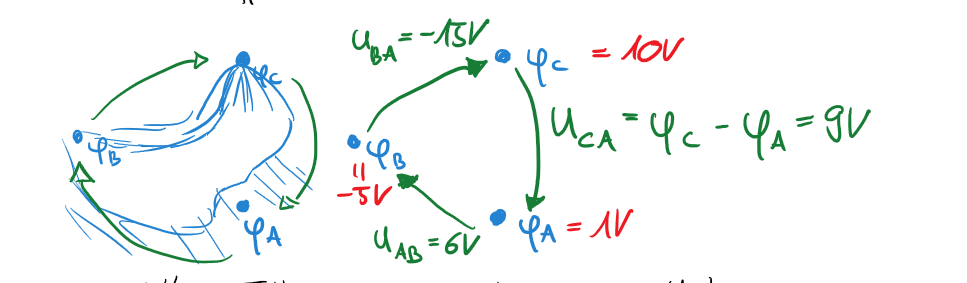 φC
φB
φA
uBA = -15V
φC = 10V
uCA = φC - φA = 9V
φB
=
-5V
φA = 1V
uAB = 6V